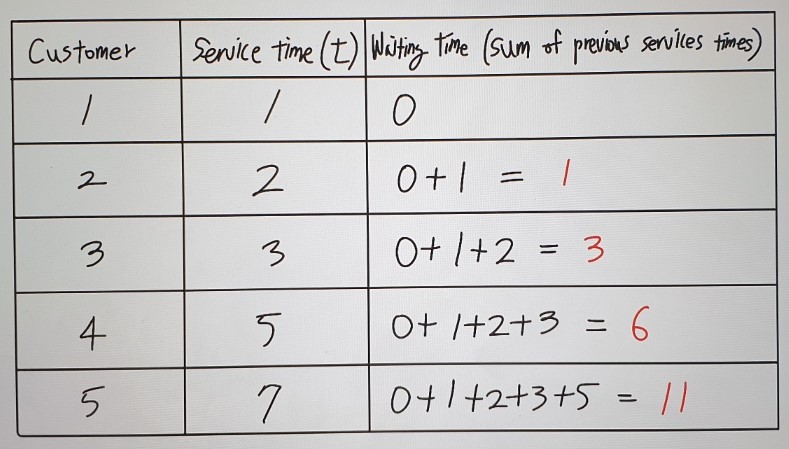 Customer Service time (t) Waiting Time (sum of previous services times)
1 1 0
2 2 0+1 = 1
3 3 0+1+2 = 3
4 5 0+1+2+3 = 6
5 7 0+1+2+3+5 = 11